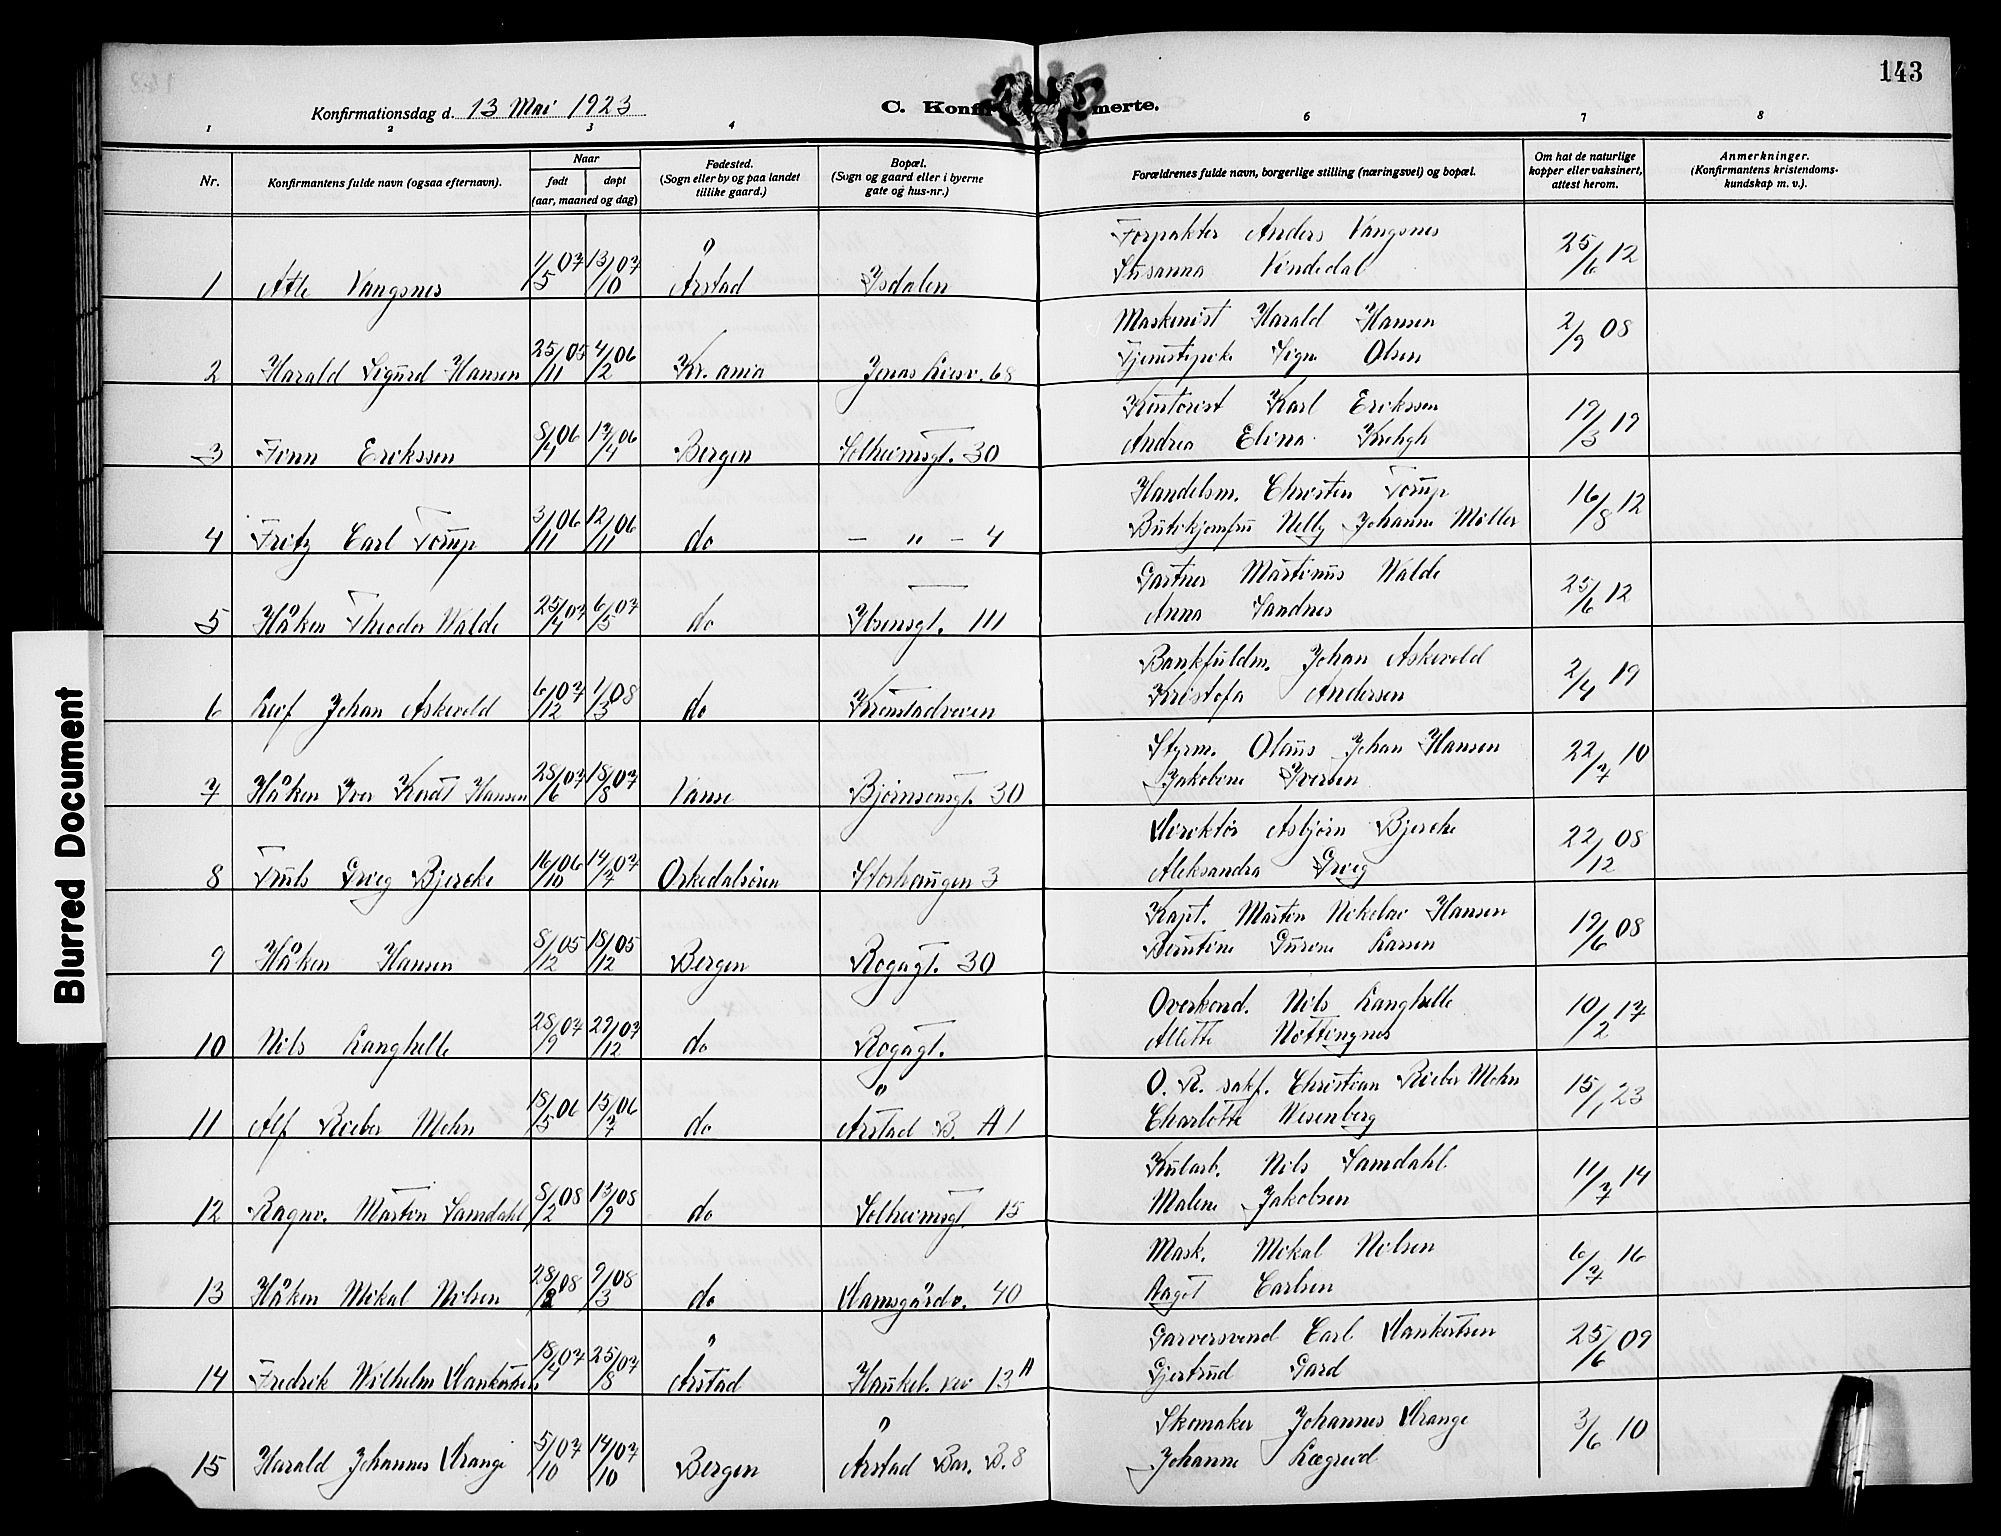 143
Konfirmationsdag d. 13 Mai 1923
C. Konfir merte.
1 2 3 4 6 7 8
Nr.
Konfirmantens fulde navn (ogsaa efternavn).
Naar
født døpt
(aar, maaned og dag)
Fødested.
(Sogn eller by og paa landet
tillike gaard.)
Bopæl.
(Sogn og gaard eller i byerne
gate og hus-nr.)
Forældrenes fulde navn, borgerlige stilling (næringsvei) og bopæl.
Om hat de naturlige
kopper eller vaksinert,
attest herom.
Anmerkninger.
(Konfirmantens kristendoms-
kundskap m. v.).
Forpakter Anders Vangsnes
Susanna Vindedal
1 Atle Vangsnes 1/5 07 13/10 07 Årstad Isdalen 25/6 12
Maskinist Harald Hansen
Signe Olsen
2 Harald Sigurd Hansen 25/11 05 4/2 06 Kr.ania Jonas Liesv. 68 2/9 08
Karl Erikssen
Andrea Elina Krohgh
3 Finn Erikssen 8/4 06 17/4 06 Bergen Solheimsgt. 30 19/3 19
Handelsm. Christen Torup
Butikjomfru Nelly Johanne Møller
4 Fritz Carl Torup 3/11 06 12/11 06 do – " – 4 16/8 12
Gartner Martinus Walde
Anna Sandnes
5 Håkon Theodor Walde 25/4 07 6/5 07 do Ibsensgt. 111 25/6 12
Bankfuldm. Johan Askevold
Kristofa Andersen
6 Leif Johan Askevold 6/12 07 1/3 08 do Kronstadveien 2/4 19
Styrm. Olaus Johan Hansen
Jakobine Iversen
7 Håkon Iver Knut Hansen 28/6 07 18/8 07 Vanse Bjørnsonsgt. 30 22/7 10
Direktør Asbjørn Bjercke
Aleksandra Grieg
8 Truls Grieg Bjercke 16/10 06 14/7 07 Orkedalsøren Storhaugen 3 22/12 08
Kapt. Martin Nikolai Hansen
Gurine Larsen
9 Håkon Hansen 8/12 05 18/12 05 Bergen Rogagt. 30 19/6 08
Overkond. Nils Langhelle
Alette
10 Nils Langhelle 28/9 07 29/12 07 do Rogagt. 10/2 17
O. R. sakf. Christian Rieber Mohn
Charlotte Wesenberg
11 Alf Rieber Mohn 18/5 06 15/7 06 do Årstad B. A 1 15/1 23
Kularb. Nils Samdahl
Malene Jakobsen
12 Ragnv. Martin Samdahl 8/2 08 13/9 08 do Solheimsgt. 15 11/7 14
Mask. Mikal Nilsen
Aagot Carlsen
13 Håkon Mikal Nilsen 28/2 08 9/3 08 do Damsgårdv. 40 6/7 16
Garversvend Carl Dankertsen
Gjertrud Gard
14 Fredrik Wilhelm Dankertsen 18/4 07 25/8 07 Årstad Haukel. vei 13 A 25/6 09
Skomaker Johannes Drange
Johanne Lægreid
15 Harald Johannes Drange 5/10 07 14/10 07 Bergen Årstad Bar. B. 8 3/6 10
Blurred Document